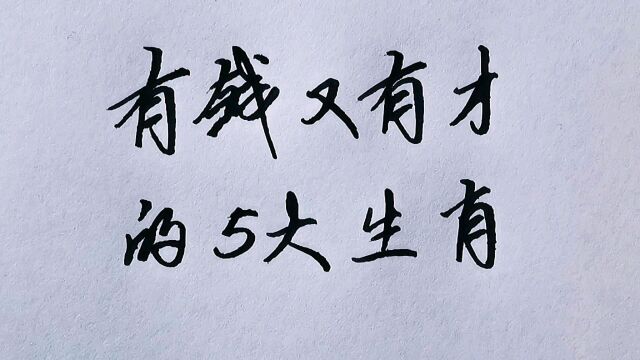 有钱又有才
的5大生肖